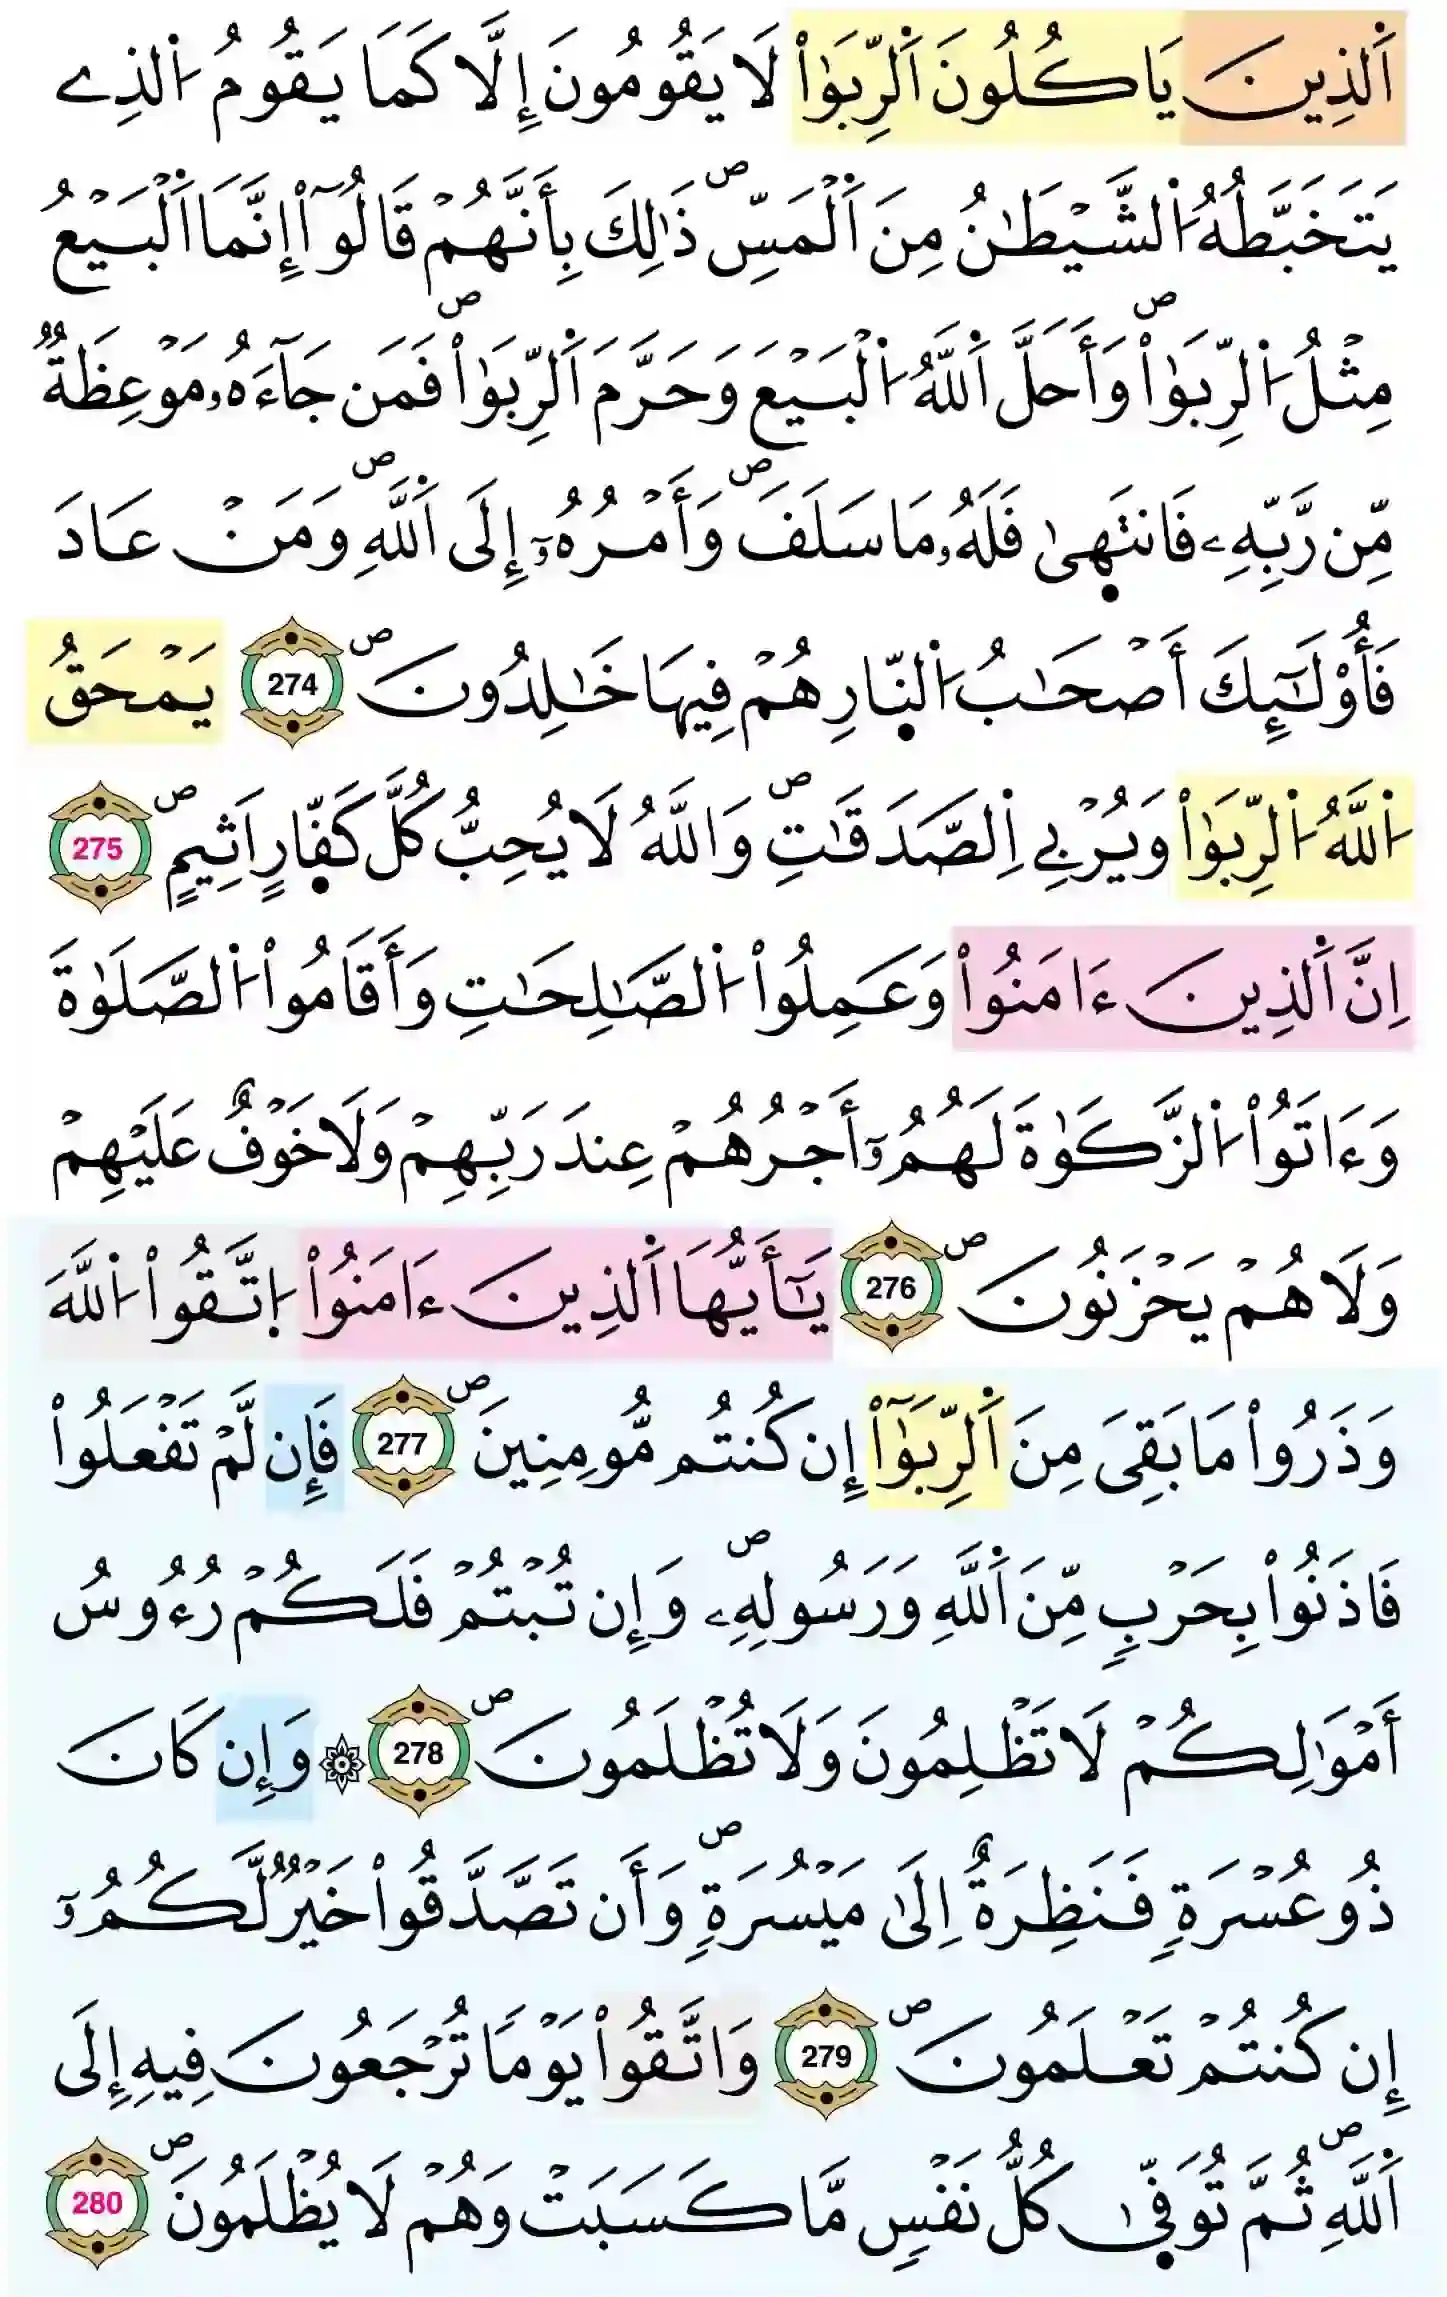 اَ۬لذِينَ يَاكُلُونَ اَ۬لرِّبَوٰاْ لَا يَقُومُونَ إِلَّا كَمَا يَقُومُ اُ۬لذِے
يَتَخَبَّطُهُ اُ۬لشَّيْطَٰنُ مِنَ اَ۬لْمَسِّۖ ذَٰلِكَ بِأَنَّهُمْ قَالُوٓاْ إِنَّمَا اَ۬لْبَيْعُ
مِثْلُ اُ۬لرِّبَوٰاْۖ وَأَحَلَّ اَ۬للَّهُ اُ۬لْبَيْعَ وَحَرَّمَ اَ۬لرِّبَوٰاْۖ فَمَن جَآءَهُۥ مَوْعِظَةٞ
مِّن رَّبِّهِۦ فَانتَه۪ىٰ فَلَهُۥ مَا سَلَفَۖ وَأَمْرُهُۥٓ إِلَى اَ۬للَّهِۖ وَمَنْ عَادَ
فَأُوْلَٰٓئِكَ أَصْحَٰبُ اُ۬لنّ۪ارِ هُمْ فِيهَا خَٰلِدُونَۖ 274 يَمْحَقُ
اُ۬للَّهُ اُ۬لرِّبَوٰاْ وَيُرْبِي اِ۬لصَّدَقَٰتِۖ وَاللَّهُ لَا يُحِبُّ كُلَّ كَفّ۪ارٍ اَثِيمٍۖ 275
اِنَّ اَ۬لذِينَ ءَامَنُواْ وَعَمِلُواْ اُ۬لصَّٰلِحَٰتِ وَأَقَامُواْ اُ۬لصَّلَوٰةَ
وَءَاتَوُاْ اُ۬لزَّكَوٰةَ لَهُمُۥٓ أَجْرُهُمْ عِندَ رَبِّهِمْ وَلَا خَوْفٌ عَلَيْهِمْ
وَلَا هُمْ يَحْزَنُونَۖ 276 يَٰٓأَيُّهَا اَ۬لذِينَ ءَامَنُواْ اُ۪تَّقُواْ اُ۬للَّهَ
وَذَرُواْ مَا بَقِيَ مِنَ اَ۬لرِّبَوٰٓاْ إِن كُنتُم مُّومِنِينَۖ 277 فَإِن لَّمْ تَفْعَلُواْ
فَاذَنُواْ بِحَرْبٖ مِّنَ اَ۬للَّهِ وَرَسُولِهِۦۖ وَإِن تُبْتُمْ فَلَكُمْ رُءُوسُ
أَمْوَٰلِكُمْ لَا تَظْلِمُونَ وَلَا تُظْلَمُونَۖ 278 ۞ وَإِن كَانَ
ذُو عُسْرَةٖ فَنَظِرَةٌ اِلَىٰ مَيْسُرَةٖۖ وَأَن تَصَّدَّقُواْ خَيْرٞ لَّكُمُۥٓ
إِن كُنتُمْ تَعْلَمُونَۖ 279 وَاتَّقُواْ يَوْماٗ تُرْجَعُونَ فِيهِ إِلَى
اَ۬للَّهِۖ ثُمَّ تُوَفّ۪ىٰ كُلُّ نَفْسٖ مَّا كَسَبَتْ وَهُمْ لَا يُظْلَمُونَۖ 280